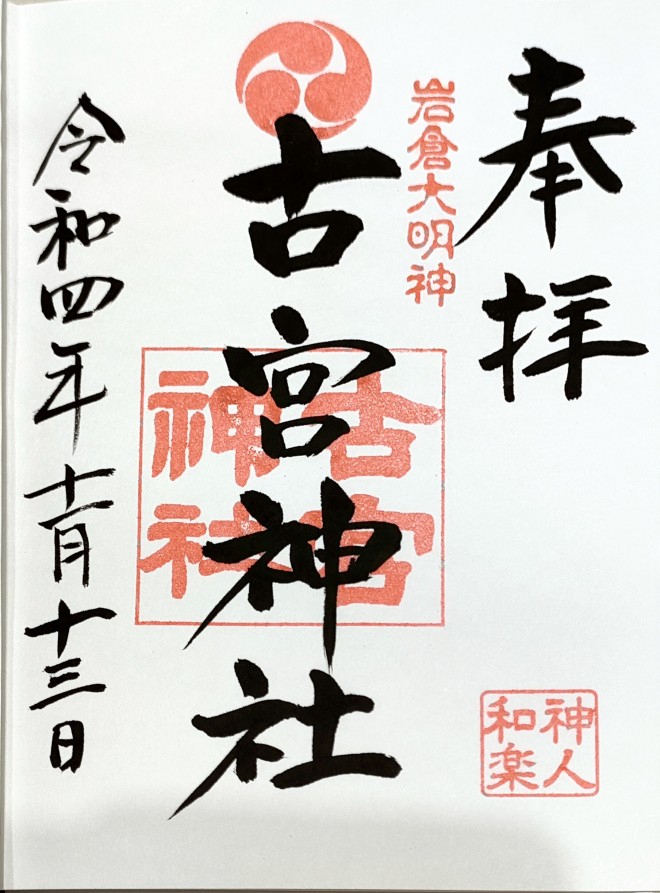 奉拝
岩倉大明神
古宮神社
古宮
神社
令和四年十一月十三日
神人
和楽